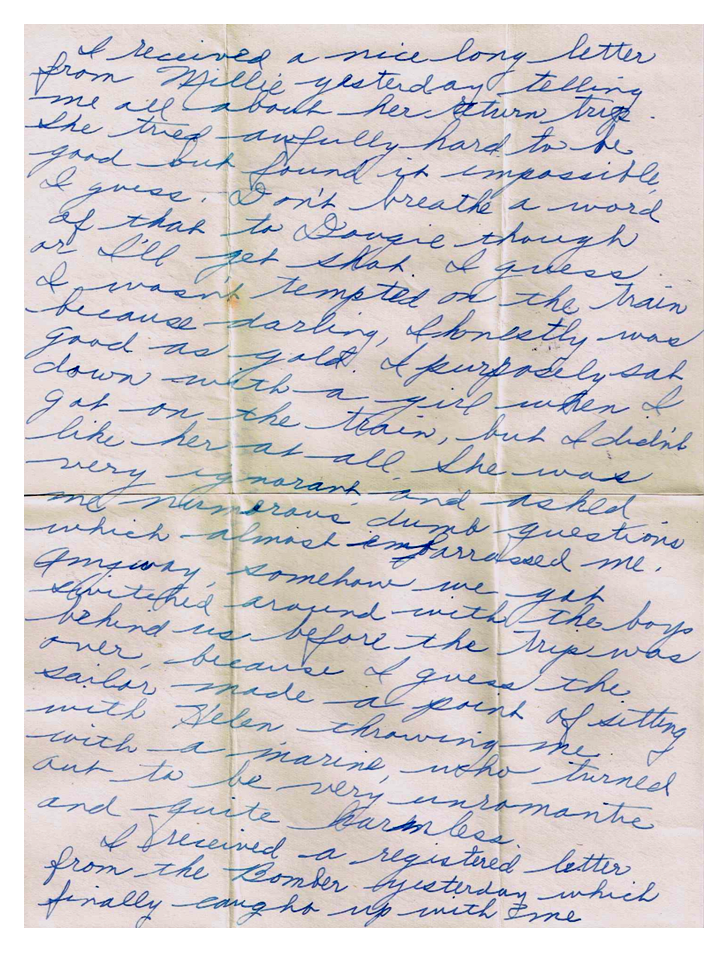 I received a nice long letter
from Millie yesterday telling
me all about her return trip.
She tried awfully hard to be
good but found it impossible,
I guess. Don't breathe a word
of that to Dougie though
or I'll get shot. I guess
I wasn't tempted on the train
because darling, I honestly was
good as gold. I purposely sat
down with a girl when I
got on the train, but I didn't
like her at all. She was
very ignorant and asked
me numerous dumb questions
which almost embarrassed me.
Anyway, somehow we got
switched around with the boys
behind us before the trip was
over, because I guess the
sailor made a point of sitting
with Helen throwing me
with a marine, who turned
out to be very unromantic
and quite harmless.
I received a registered letter
from the Bomber yesterday which
finally caught up with me